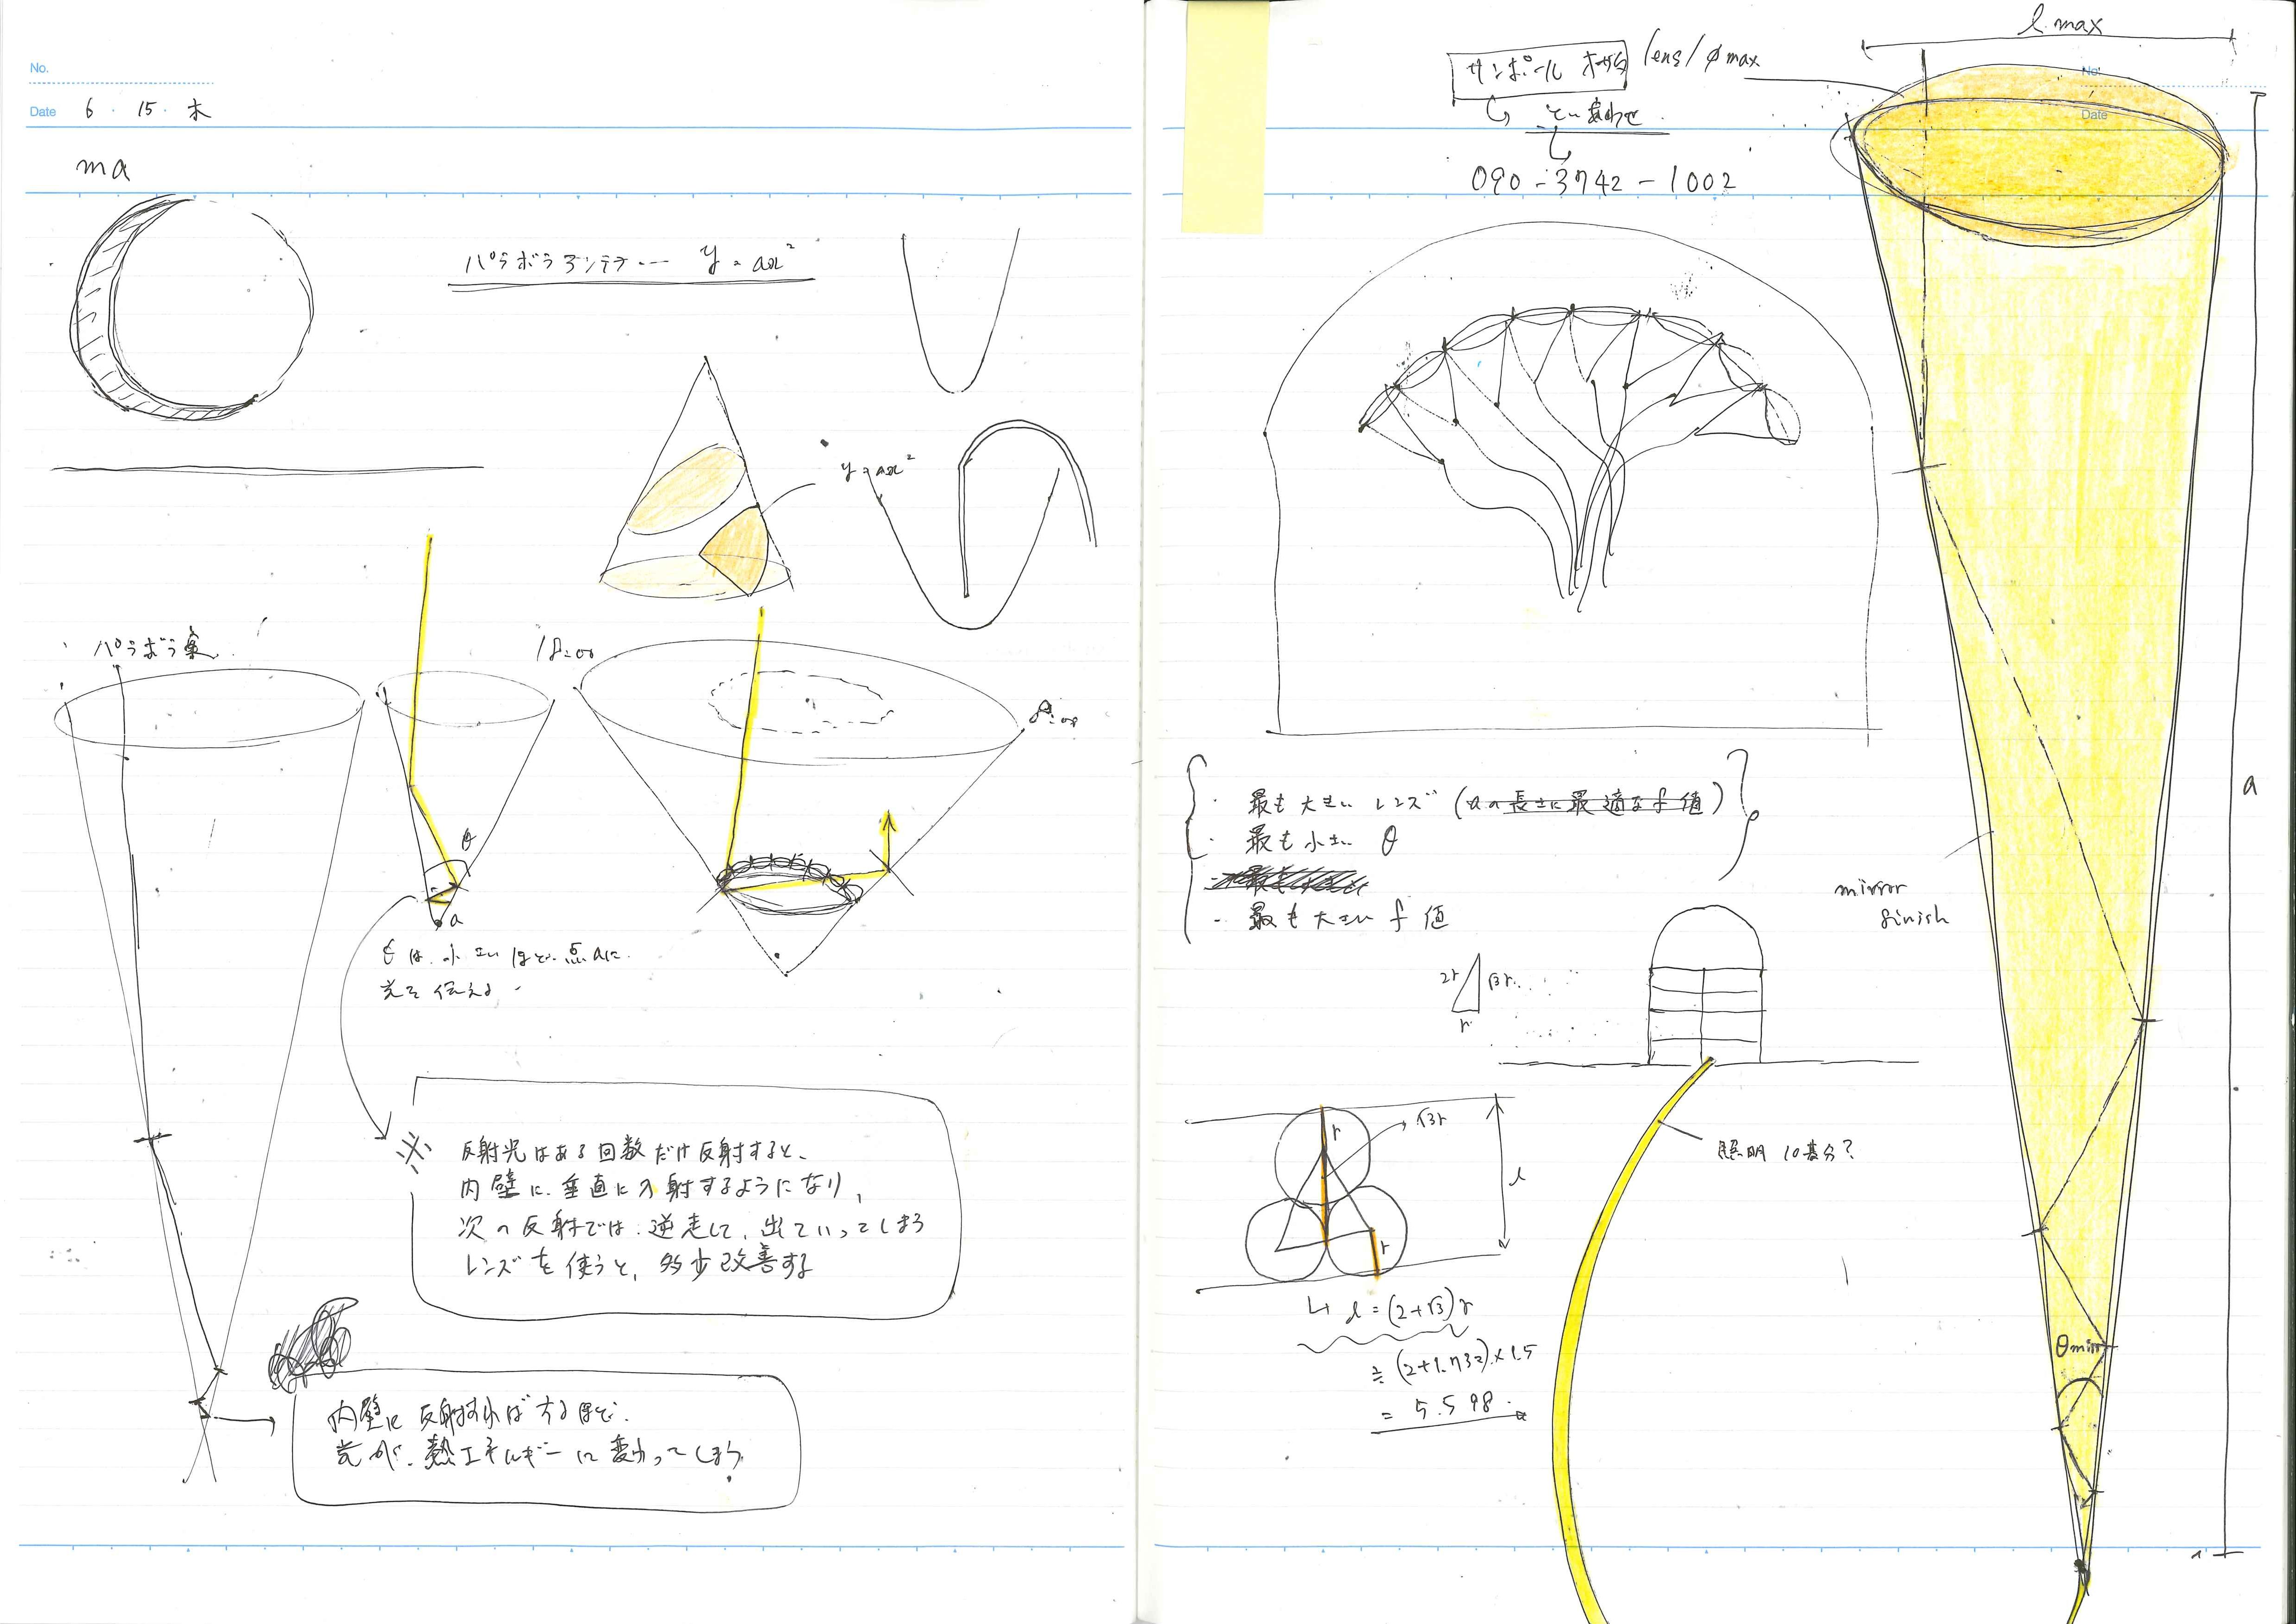 No.
Date 6 · 15 · 木
ma
パラボラアンテナー y = ax²
y = ax²
パラボラ
θ
a
は 小さい ほど 点aに
光を 伝える
※ 反射光はある回数だけ反射すると、
内壁に 垂直に入射するようになり、
次の反射では 逆走して、出ていってしまう
レンズを使うと、多少改善する
内壁に反射すればするほど、
光が、熱エネルギーに変わってしまう
No.
Date
サンポール
lens / φmax
l max
とい合わせ
090-3742-1002
a
・最も大きい レンズ (aの長さに最適なf値)
・最も小さい θ
・最も大きい f 値
mirror
finish
2r
√3r
r
√3r
r
r
l
照明 10基分?
↳ l = (2+√3)r
≒ (2+1.732)×1.5
= 5.598
θmin